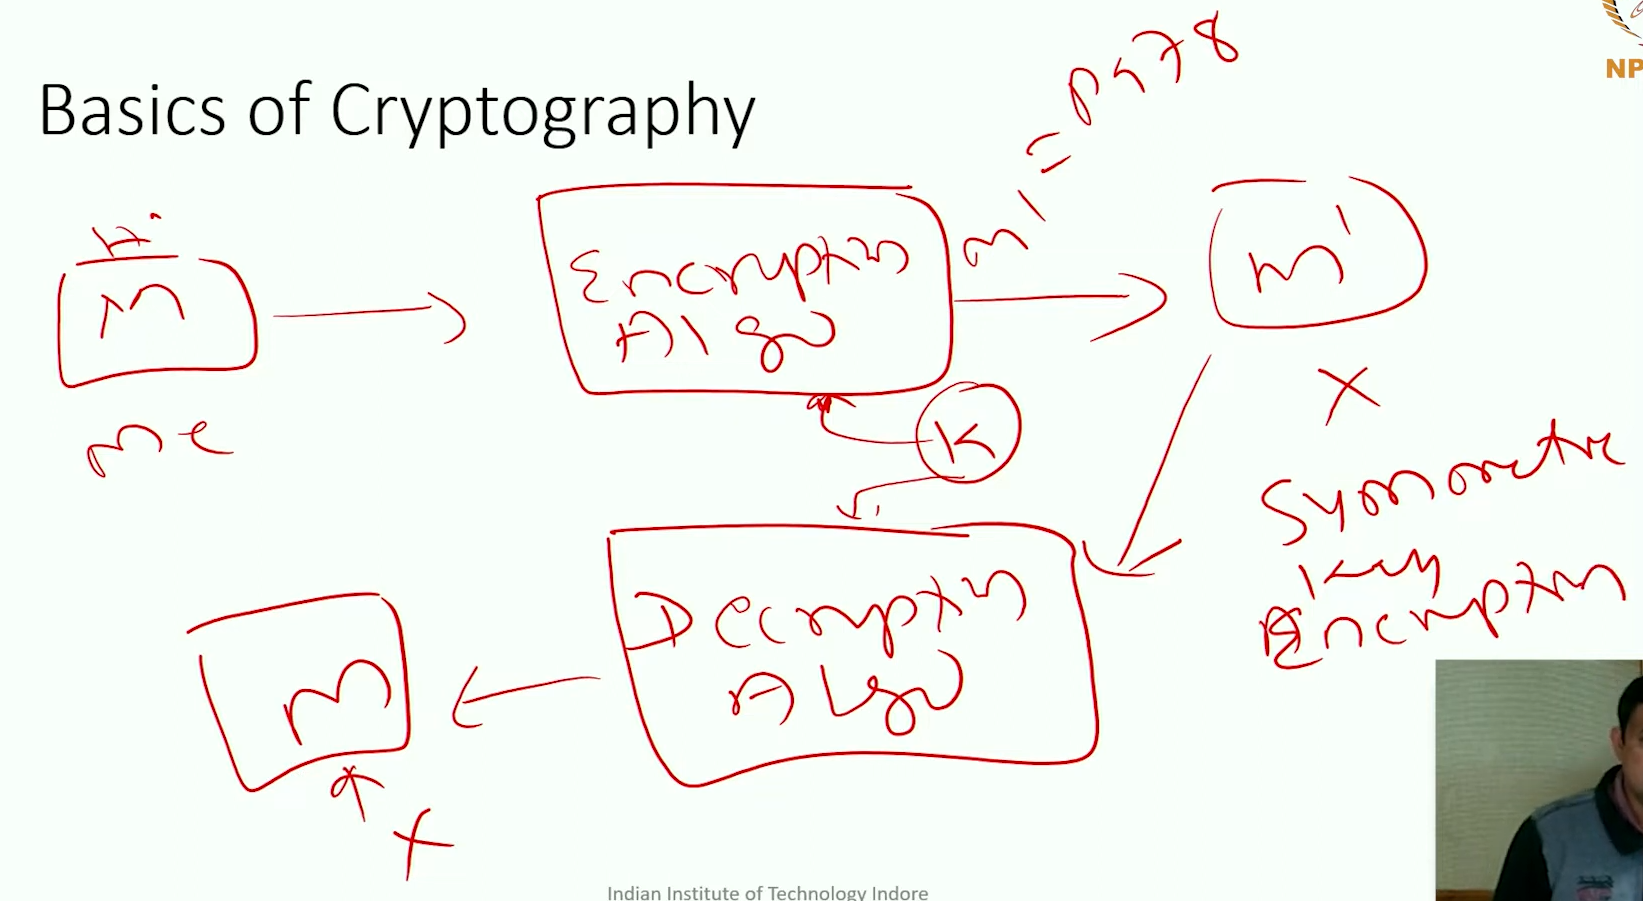 Basics of Cryptography
NP
Hi
m
me
Encryptn
Algo
m' = pq78
m'
X
K
Symmetric
Key
Encryptn
Decryptn
Algo
m
X
Indian Institute of Technology Indore